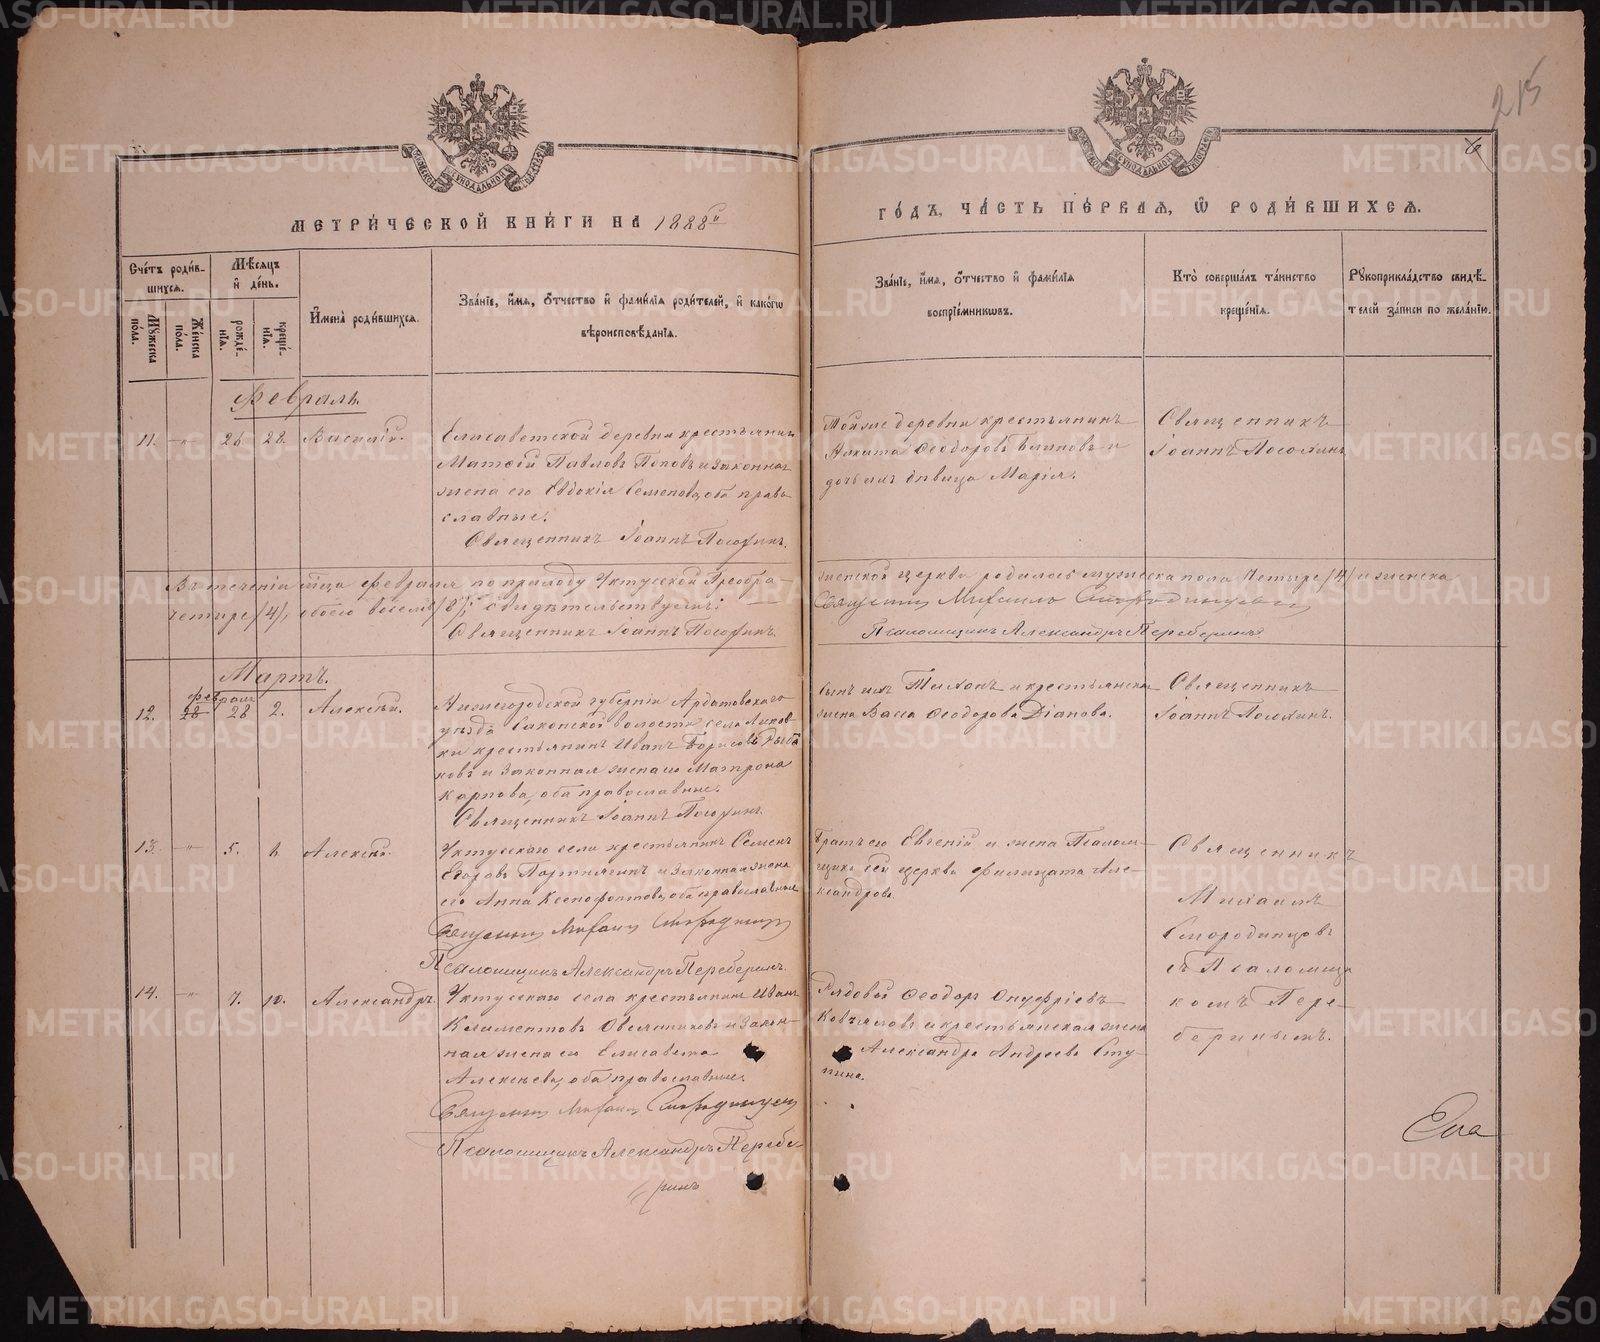 215
6
МЕТРИЧЕСКОЙ КНИГИ НА 1888й
ГОДЪ, ЧАСТЬ ПЕРВАЯ, Ѿ РОДИВШИХСЯ.
Счетъ родив-
шихся.
Мужеска пола.
Женска пола.
Мѣсяцъ
и день.
рожде-
нія.
креще-
нія.
Имена родившихся.
Званіе, имя, отчество и фамилія родителей, и какого
вѣроисповѣданія.
Званіе, имя, отчество и фамилія
воспріемниковъ.
Кто совершалъ таинство
крещенія.
Рукоприкладство свидѣ-
телей записи по желанію.
Февраль.
11. -"- 26 28. Василій.
Елисаветской деревни крестьянинъ
Матѳей Павловъ Поповъ и законная
жена его Евдокія Семенова, оба право-
славные.
Священникъ Іоаннъ
Тойже деревни крестьянинъ
Никита Ѳеодоровъ и
дочь ихъ дѣвица Марія.
Священникъ
Іоаннъ
Въ теченіи м-ца февраля по приходу Уктусской Преобра-
женской церкви родилось мужеска пола четыре /4/ и женска
четыре /4/, обоего восемь /8/; свидѣтельствуемъ:
Священникъ Михаилъ Смородинцевъ
Священникъ Іоаннъ
Псаломщикъ Александръ Переберинъ
Мартъ.
февраль
12. 28 28 2. Алексѣй.
Нижегородской губерніи Ардатовскаго
уѣзда волости села
крестьянинъ Иванъ Борисовъ
и законная жена его Матрона
Карпова, оба православные.
Священникъ Іоаннъ
сынъ ихъ Тихонъ и крестьянская
жена Васса Ѳеодорова Діанова.
Священникъ
Іоаннъ
13. -"- 5. 6. Алексѣй.
Уктусскаго села крестьянинъ Семенъ
Егоровъ и законная жена
его Анна Ксенофонтова, оба православные
Священникъ Михаилъ Смородинцевъ
Псаломщикъ Александръ Переберинъ.
Братъ его Евгеній и жена Псалом-
щика сей церкви Филицата Але-
ксандрова.
Священникъ
Михаилъ
Смородинцовъ
съ Псаломщи-
комъ Пере-
беринымъ.
14. -"- 7. 10. Александръ.
Уктусскаго села крестьянинъ Иванъ
Климентовъ Овсянниковъ и закон-
ная жена его Елисавета
Алексѣева, оба православные.
Священникъ Михаилъ Смородинцевъ
Псаломщикъ Александръ Перебе-
ринъ
Рядовой Ѳеодоръ Онуфріевъ
и крестьянская жена
Александра Андреева Сту-
пина.
METRIKI.GASO-URAL.RU